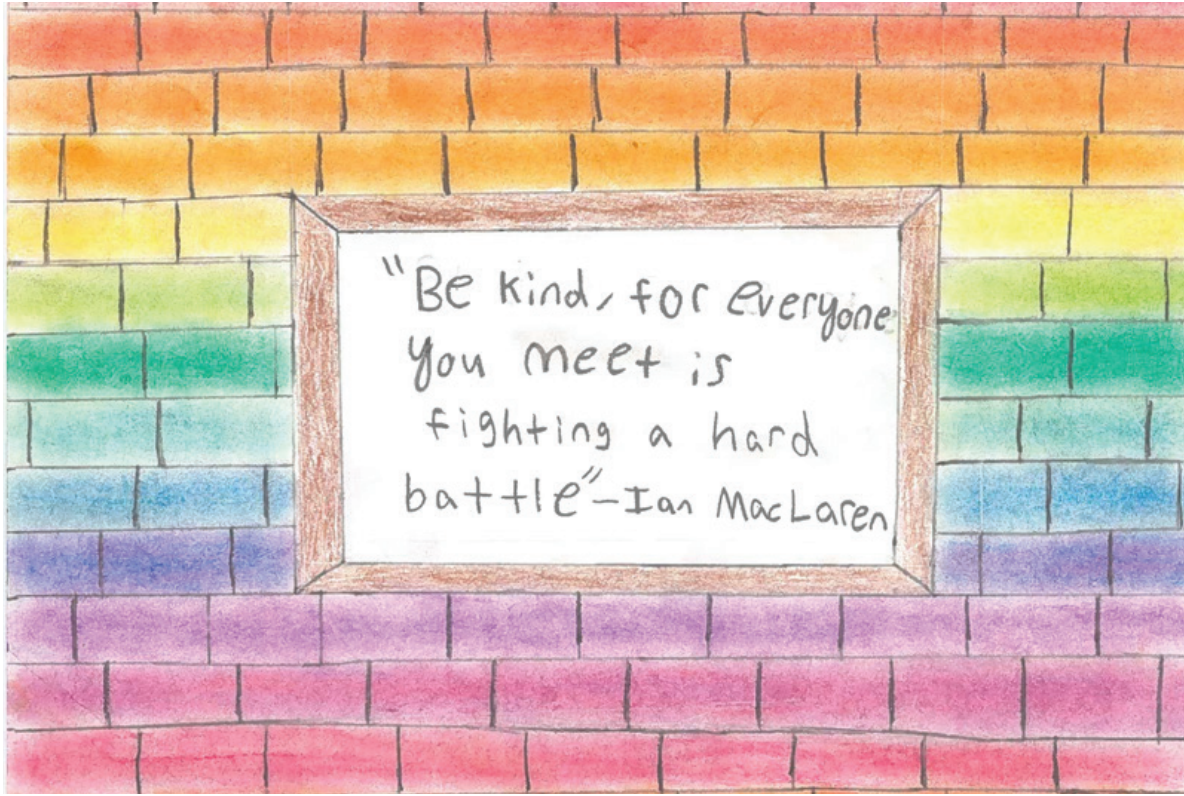 "Be kind, for everyone
you meet is
fighting a hard
battle"-Ian MacLaren